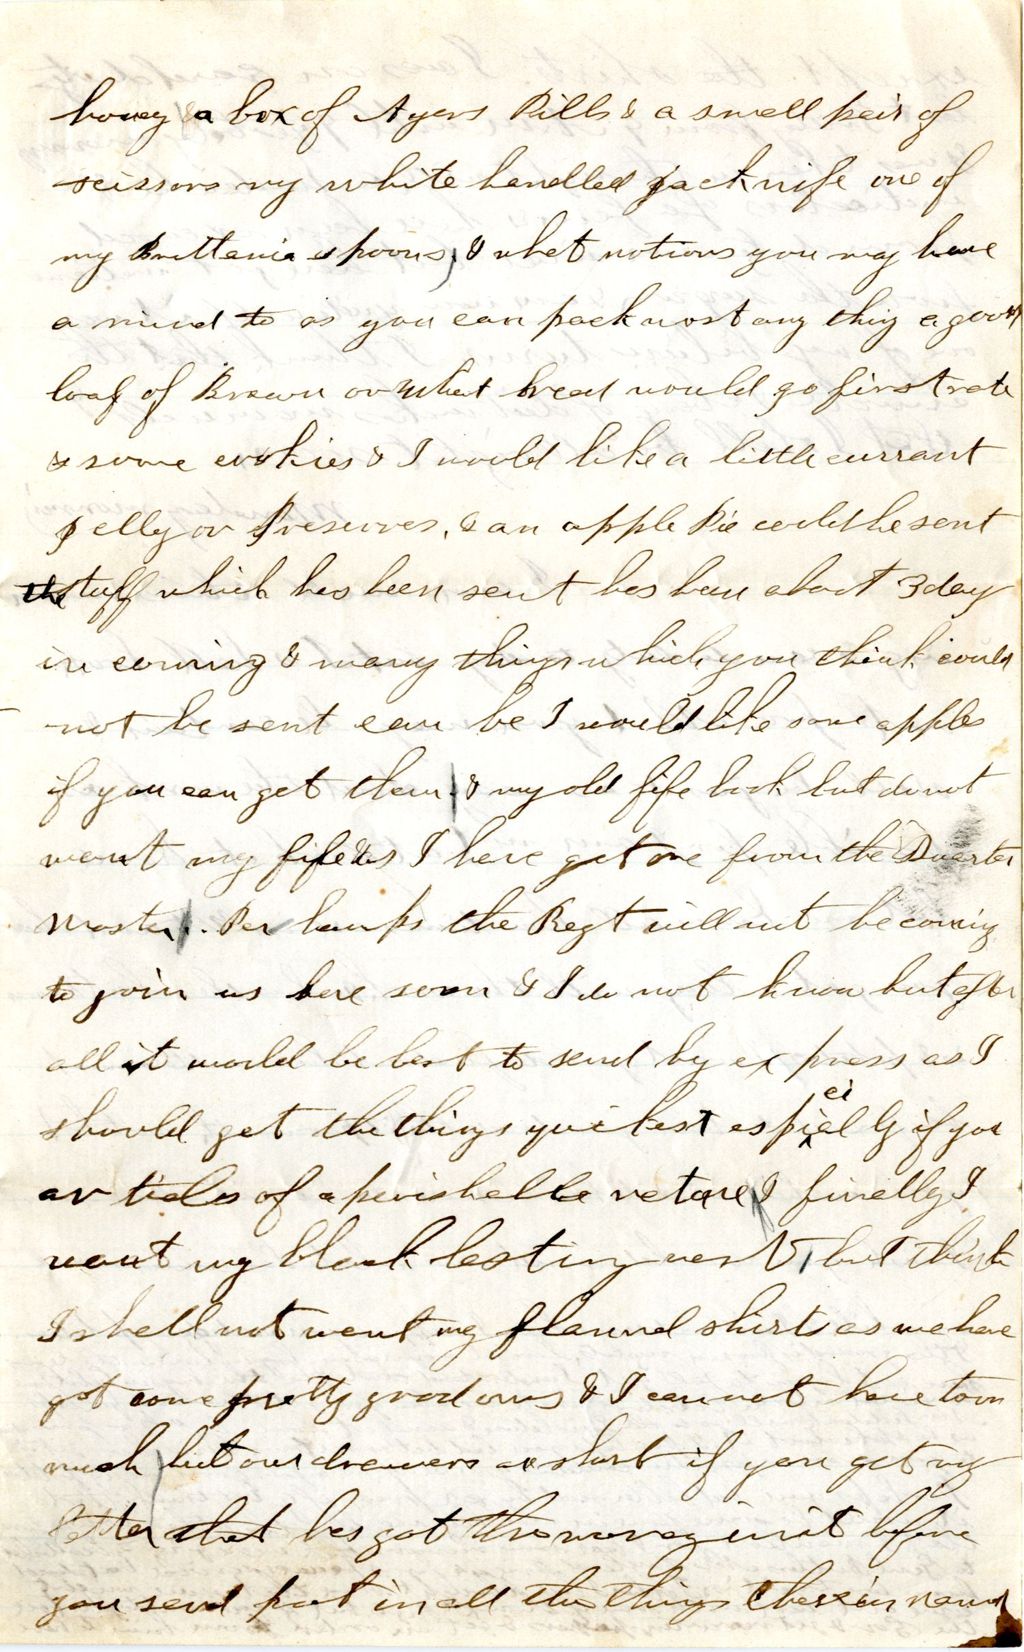 honey & a box of Ayers Pills & a small pair of
scissors my white handled jacknife one of
my Brittania spoons, & what notions you may have
a mind to as you can pack most any thing a good
loaf of Brown or Wheat bread would go first rate
& some cookies & I would like a little currant
jelly or Preserves, & an apple Pie could be sent
the stuff which has been sent has been about 3 day
in coming & many things which you think could
not be sent can be I would like some apples
if you can get them & my old fife book but do not
want my fife as I have got one from the Quarter
Master. Per haps the Regt will not be coming
to join us here soon & I do not know but after
all it would be best to send by express as I
should get the things quickest especially if you
articles of a perishable nature & finally I
want my black lasting vest, but think
I shall not want my flannel shirts as we have
got some pretty good ones & I cannot have to
much but our drawers are short if you get my
letter that has got the money in it before
you send put in all the things there in named